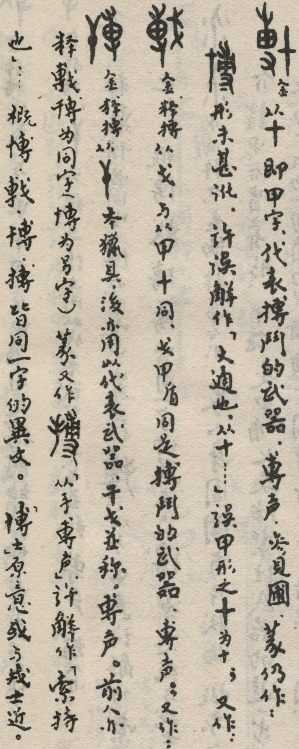 金 从十即甲字、代表搏鬥的武器、尃声、参見圃、篆仍作：
形未甚訛。許误解作「大通也、从十……」误甲形之十为十、又作：
金 释搏从戈、与从甲十同、戈甲盾同是搏鬥的武器、尃声。又作：
金 释搏从 本獵具、後亦用以代表武器、干戈並称。尃声。前人亦
释 博为同字（博为另字）篆又作搏、「从手尃声」許解作「索持
也」…概博、、搏皆同一字的異文。「博」士原意或与 士近。